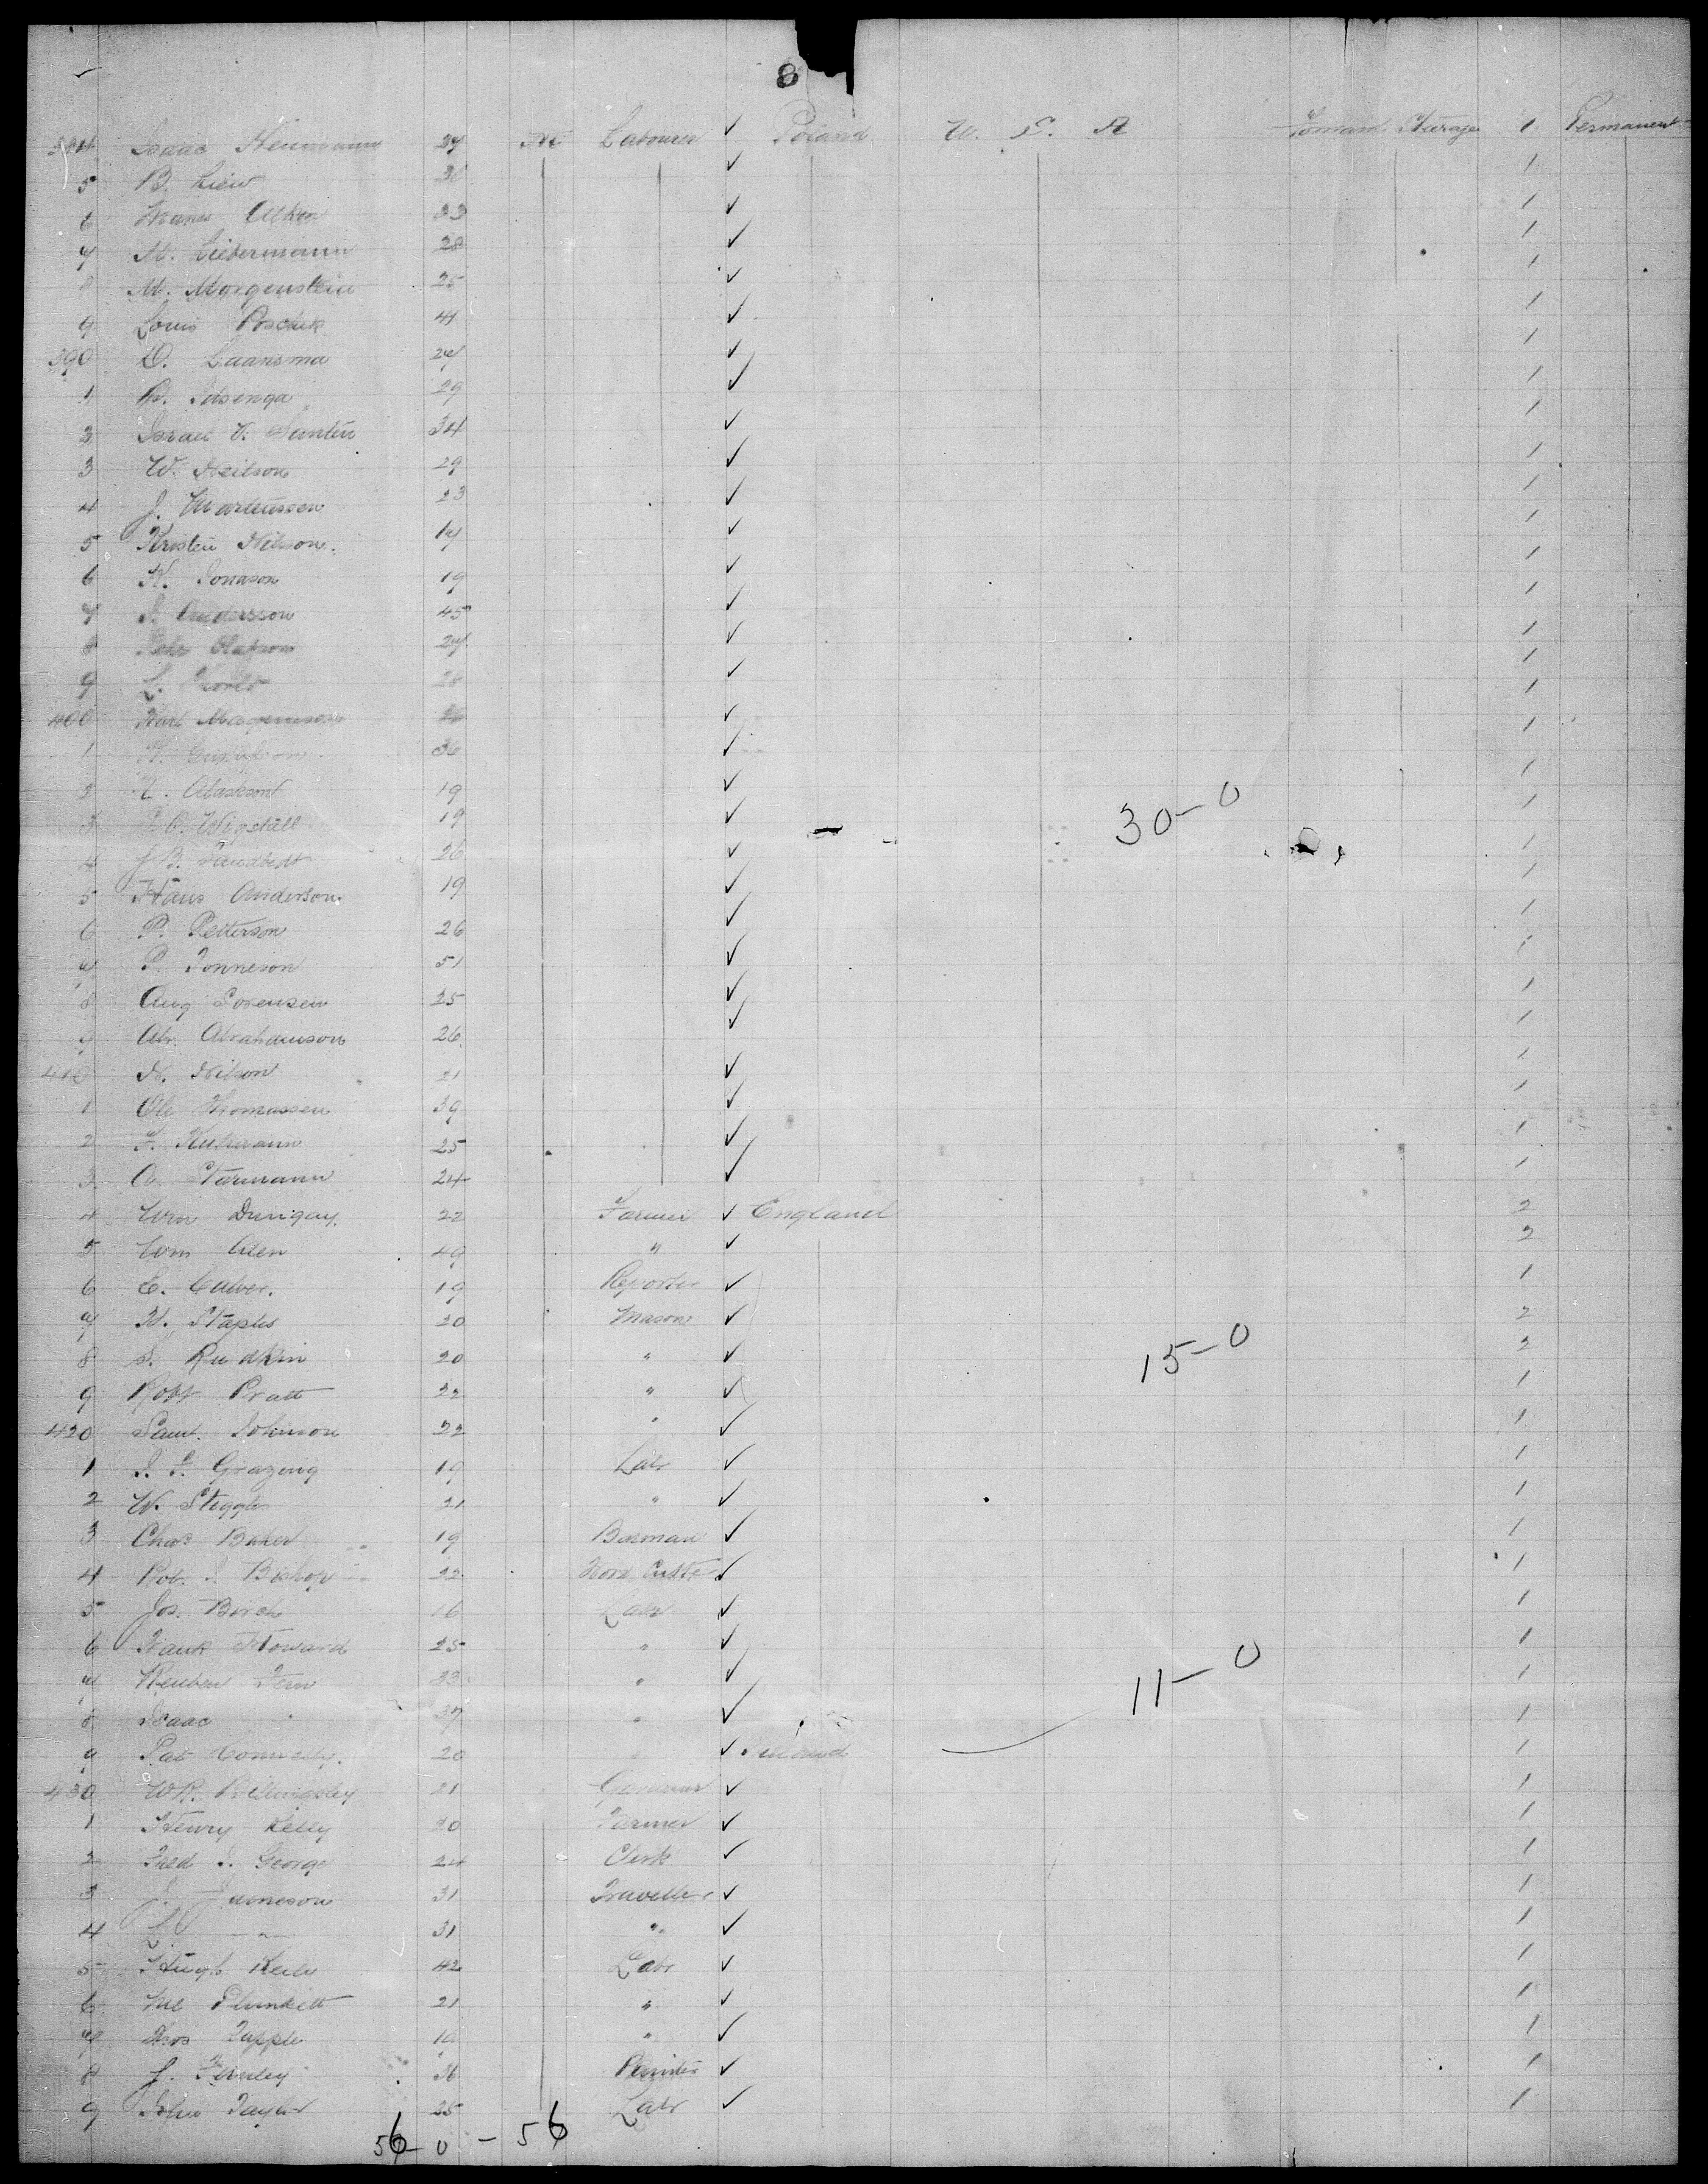 8
384 Isaac Heumann 27 M Labourer ✓ Poland U. S. A Forward Steerage 1 Permanent
5 B. Liew ✓ 1
6 33 ✓ 1
7 M. Liebermann 28 ✓ 1
8 M. Morgenstein 25 ✓ 1
9 Louis 41 ✓ 1
390 D. Laansma 27 ✓ 1
1 29 ✓ 1
2 Israel V. Santen 34 ✓ 1
3 W. Neilson 29 ✓ 1
4 J. Martinssen 23 ✓ 1
5 Kristen Nilson. 17 ✓ 1
6 K. Jonason 19 ✓ 1
7 Andersson 45 ✓ 1
8 Olafson 27 ✓ 1
9 L. ✓ 1
400 Karl Magnusson ✓ 1
1 Gustafson 36 ✓ 1
2 19 ✓ 1
3 Wigstall 19 ✓ 1
30-0
4 J B. Sandstedt 26 ✓ 1
5 Hans Anderson. 19 ✓ 1
6 P. Petterson 26 ✓ 1
7 P. Tonneson 51 ✓ 1
8 Aug Sorensen 25 ✓ 1
9 Abr. Abrahamson 26 ✓ 1
410 N. Nilson 21 ✓ 1
1 Ole Thomassen 39 ✓ 1
2 F. 25 ✓ 1
3 A. Starmann 24 ✓ 1
4 Wm Dunigay. 22 Farmer ✓ England 2
5 Wm Aden 49 " ✓ 2
6 E. Culver. 19 Reporter ✓ 1
7 H. Staples 20 Mason ✓ 2
8 S. Rudkin 20 " ✓ 2
15-0
9 Robt Pratt 22 " ✓ 1
420 Saml. Johnson 22 " ✓ 1
1 J. F. Grazeng 19 Labr ✓ 1
2 W. Steggle 21 " ✓ 1
3 Chas Baker 19 Barman ✓ 1
4 Rob. J Bishop 22 Cutter ✓ 1
5 Jos. Birch 16 Labr ✓ 1
6 Frank Howard 25 " ✓ 1
7 Reuben Fern 33 " ✓ 1
11-0
8 Isaac " 37 " ✓ 1
9 Pat Connelly. 20 " ✓ Ireland 1
430 W R. Billingsley 21 ✓ 1
1 Henry Kelly 20 Farmer ✓ 1
2 Fred J. George 24 Clerk ✓ 1
3 J. Jameson 31 Traveller ✓ 1
4 L. " 31 " ✓ 1
5 Hugh 42 Labr ✓ 1
6 Plunkett 21 " ✓ 1
7 Thos Tapple 19 " ✓ 1
8 J. Finley 36 Painter ✓ 1
9 John Taylor 25 Labr ✓ 1
56-0-56